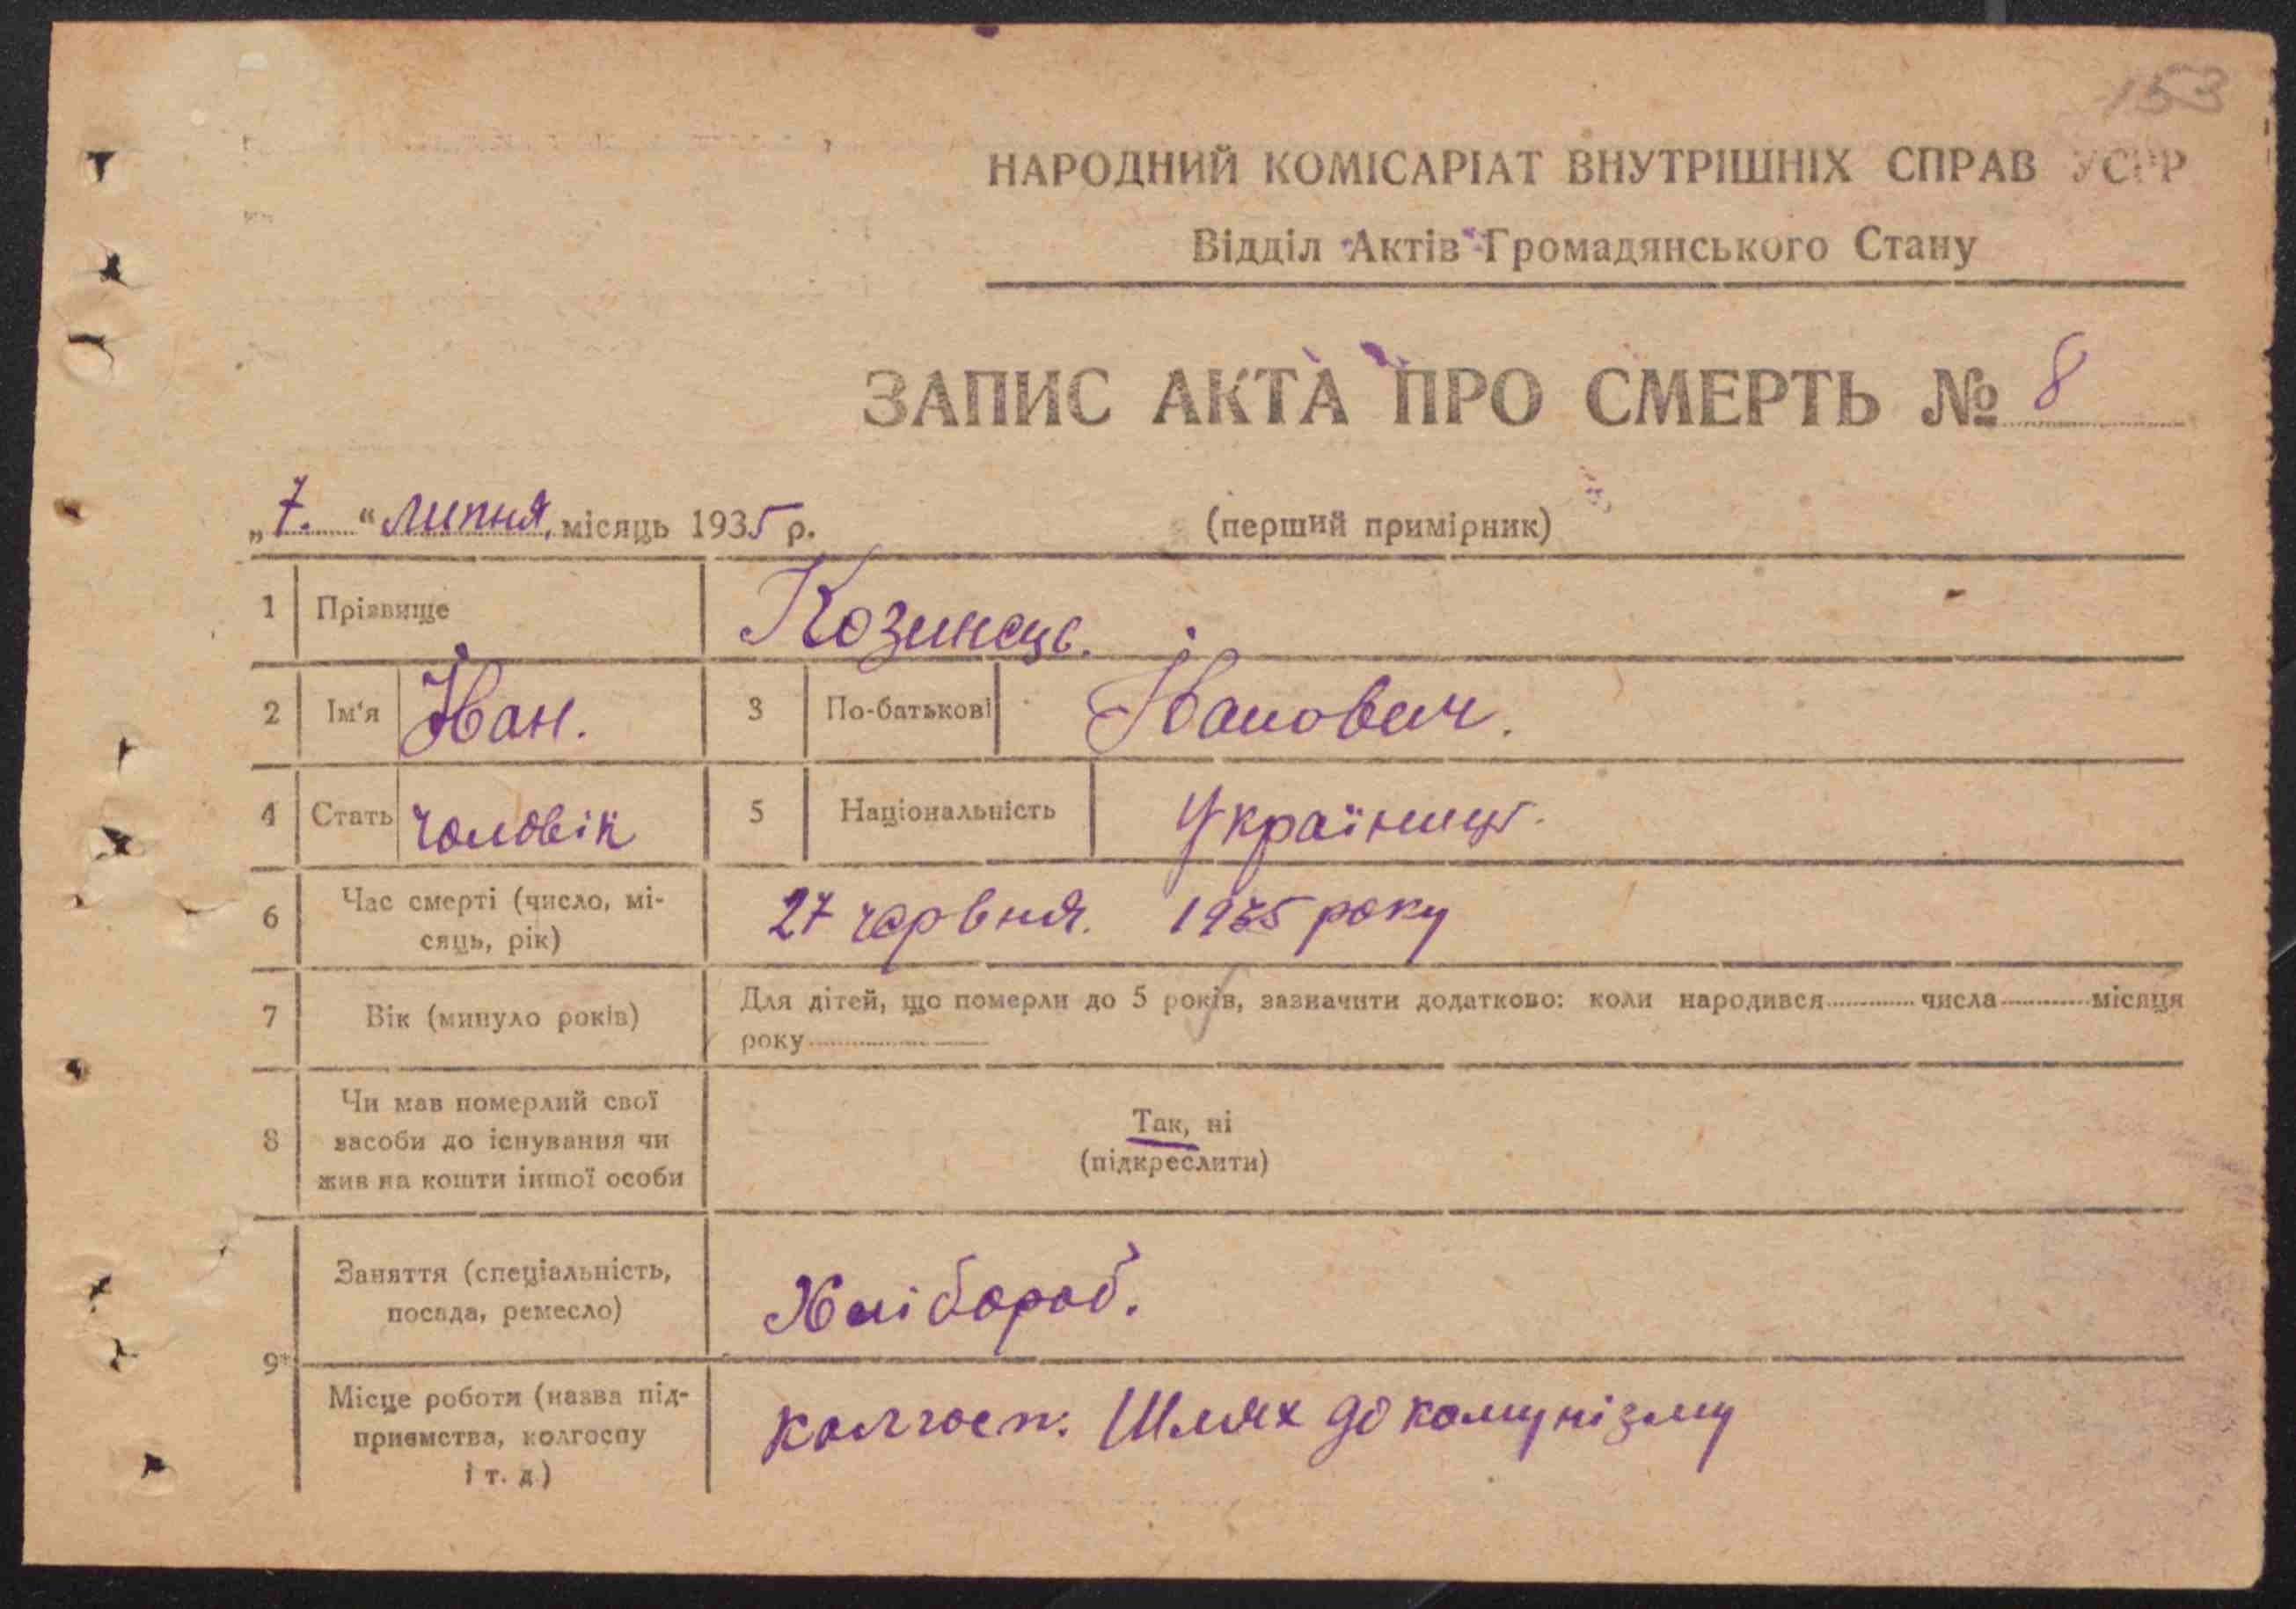 153
НАРОДНИЙ КОМІСАРІАТ ВНУТРІШНІХ СПРАВ УСРР
Відділ Актів Громадянського Стану
ЗАПИС АКТА ПРО СМЕРТЬ № 8
„7.“ липня, місяць 1935 р.
(перший примірник)
1 Прізвище Козинець.
2 Ім'я Іван. 3 По-батькові Іванович.
4 Стать чоловік 5 Національність Українець.
6 Час смерті (число, мі-
сяць, рік) 27 червня. 1935 року
7 Вік (минуло років) Для дітей, що померли до 5 років, зазначити додатково: коли народився числа місяця
року
8 Чи мав померлий свої
засоби до існування чи
жив на кошти іншої особи
Так, ні
(підкреслити)
9 Заняття (спеціальність,
посада, ремесло) Хлібороб.
Місце роботи (назва під-
приємства, колгоспу
і т. д.) колгосп. Шлях до комунізму